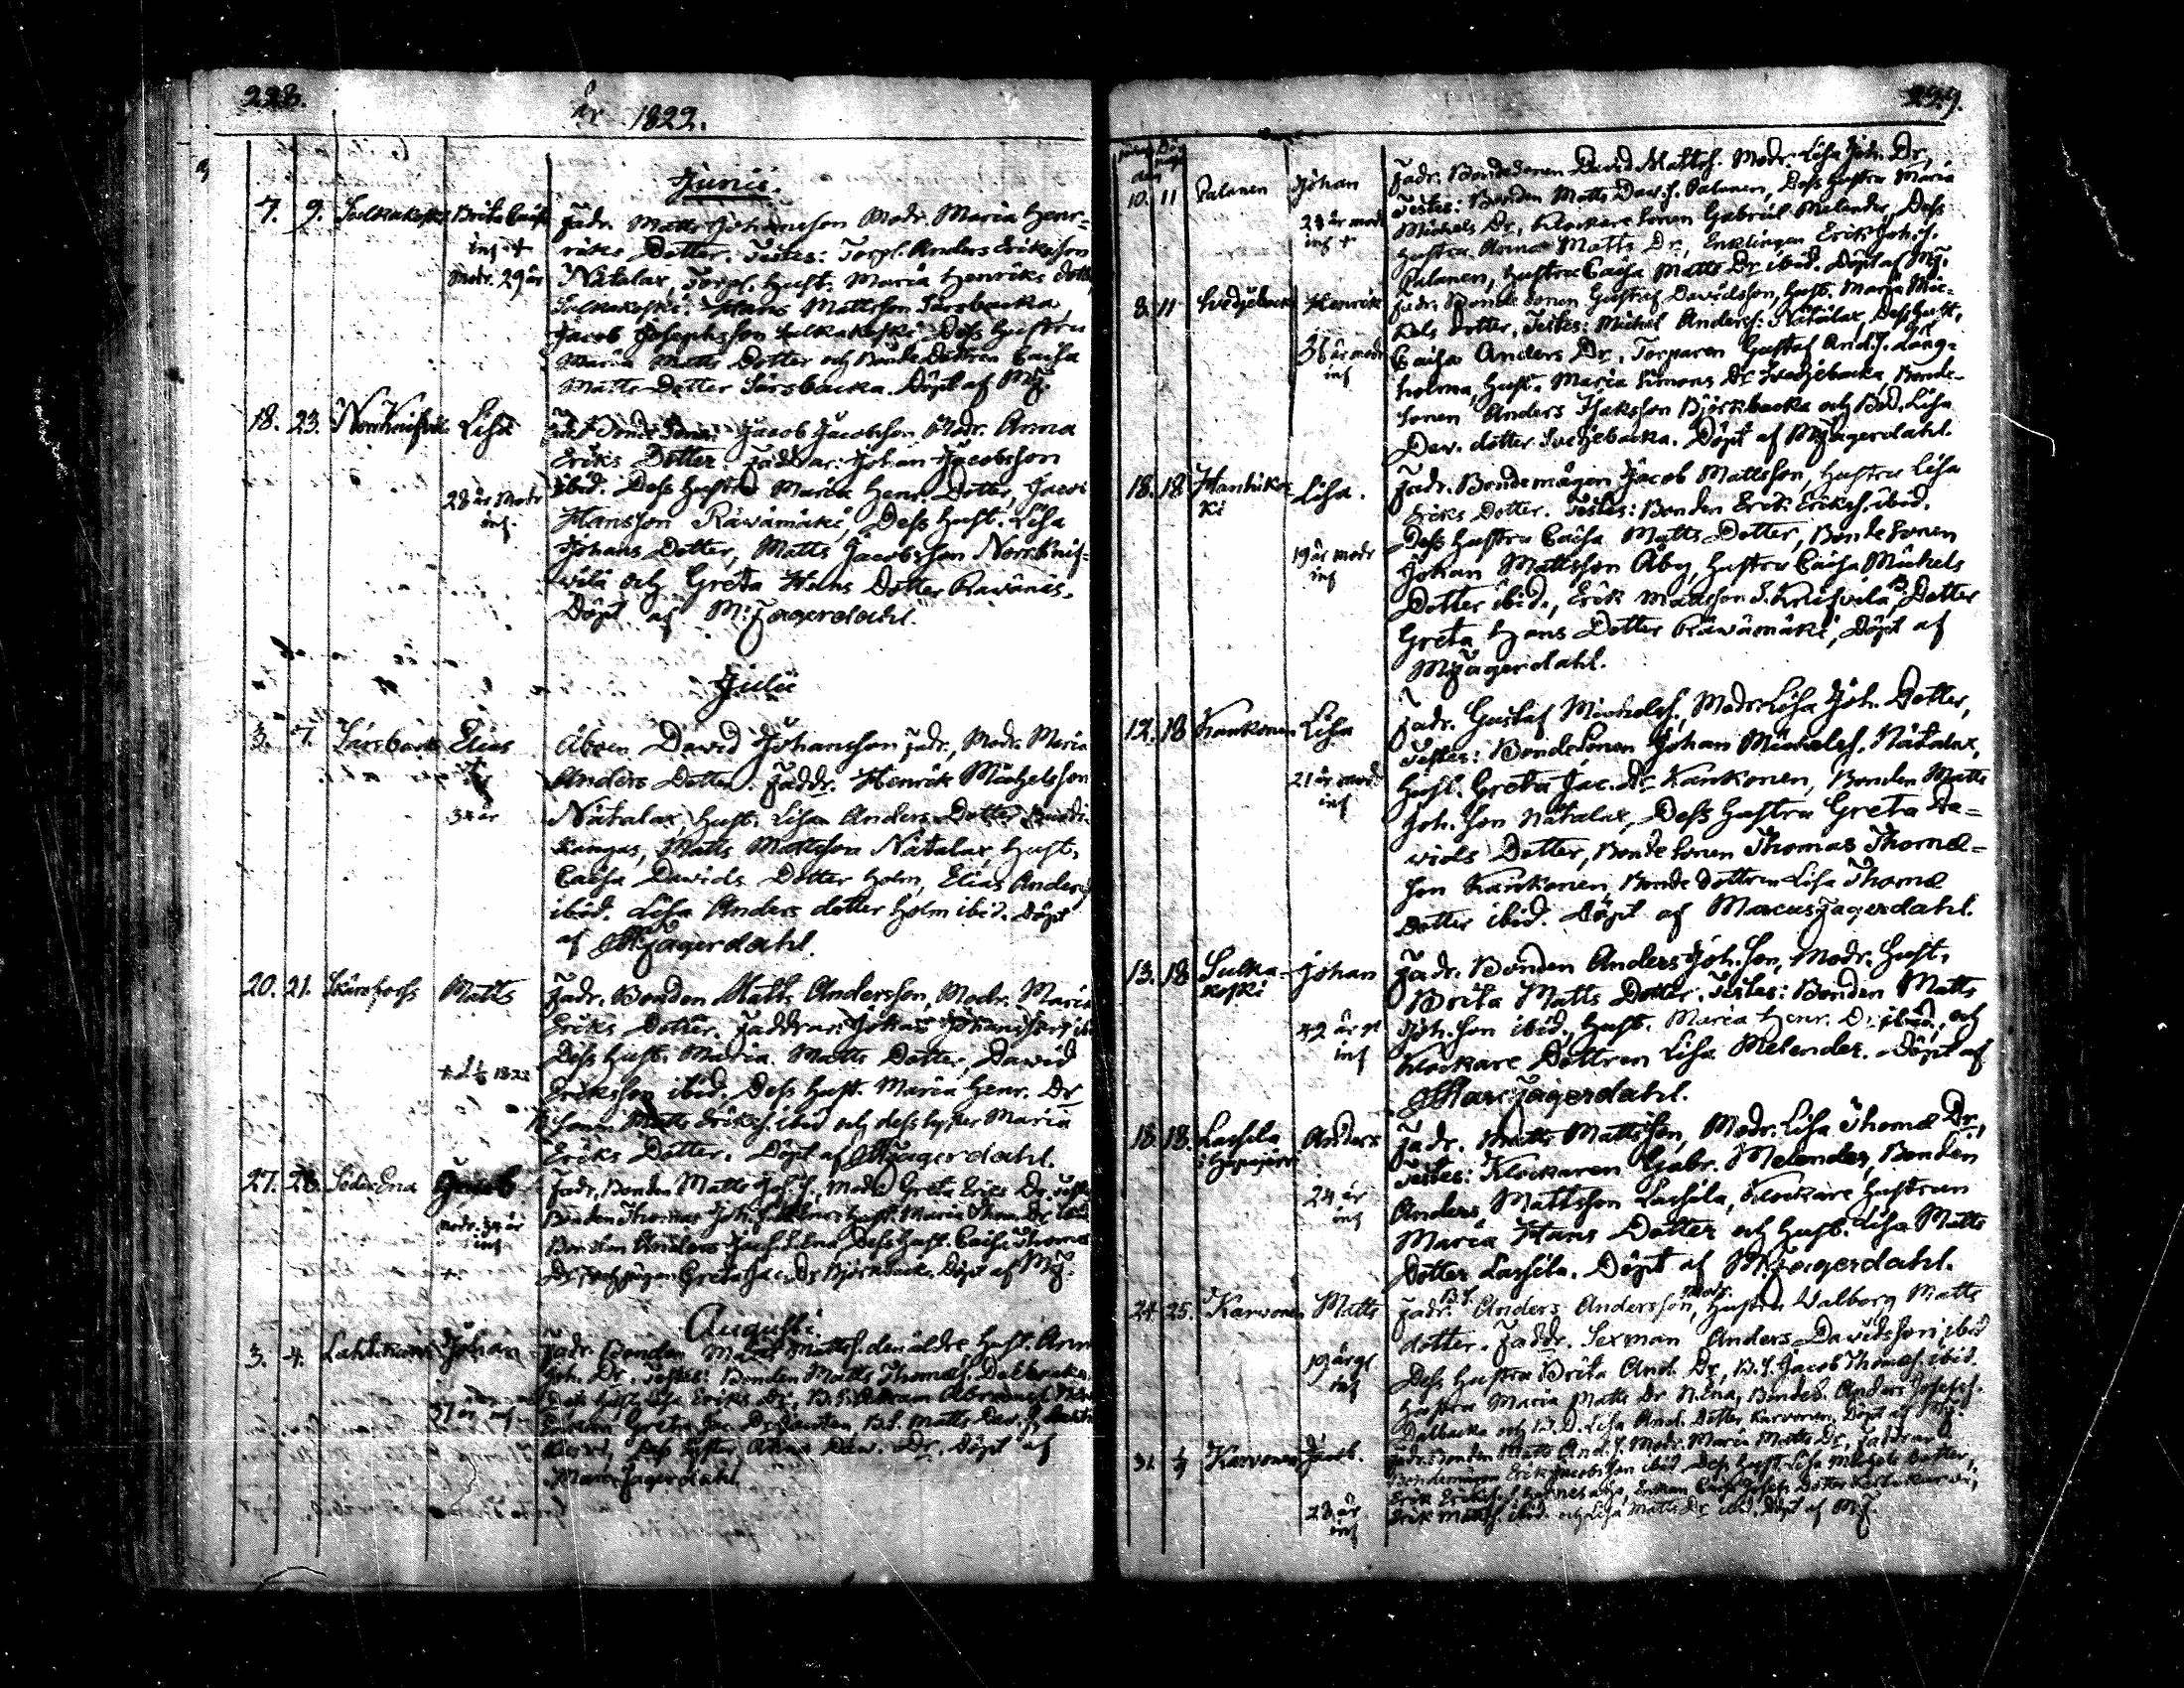 228.
år 1822.
Junii.
7. 9. Sulkakoski Brita Caisa Fadr. Matts Johansson Modr. Maria Hen-
inf + riks Dotter. Testes: Torp. Anders Eriksson
Modr. 29 år Nätalax, Torp. Hust. Maria Henriks dotter
Sulkakoski. Hans Mattsson Särsbacka
Jacob Josephsson Sulkakoski Dess Hustru
Maria Matts Dotter och Bonde Dottren Caisa
Matts Dotter Särsbacka. Döpt af MJ.
18. 23. Norrknifvilä Lisa Fadr Bonde Sonen Jacob Jacobsson Modr. Anna
Eriks Dotter. Faddrar: Johan Jacobsson
28 år Modr ibid. Dess Hustru Maria Henr. Dotter, Jacob
inf. Hansson Räwämäki, Dess Hust. Lisa
Johans Dotter, Matts Jacobsson Norrknif-
vilä och Greta Hans Dotter
Döpt af M: Fagerdahl.
Julii
3. 7. Elias Åboen David Johansson Fadr, Modr. Maria
Anders Dotter. Faddr. Henrik Michelsson
34 år Nätalax, Hust. Lisa Anders Dotter
kangas, Matts Mattsson Nätalax, Hust.
Caisa Davids Dotter Holm, Elias Anders
ibid. Lisa Anders dotter Holm ibid. Döpt
af MFagerdahl.
20. 21. Matts Fadr. Bonden Matts Andersson, Modr. Maria
Eriks Dotter. Faddrar: Johan Johansson
Dess Hust. Maria Matts Dotter, David
Eriksson ibid. Dess Hust. Maria Henr. Dr
Sonen Matts Eriks. ibid och dess syster Maria
Eriks Dotter. Döpt af MFagerdahl.
27. 28. Söder Ena Jacob Fadr. Bonden Matts Joh.s., Modr Greta Erics Dr. Testes
modr. 34 år Bonden Thomas Joh. Hust. Maria Thom. Dr
inf Bonden Anders Jac.s. Ena, Dess Hust. Caisa Thomæ
+ Dr och pigan Greta Jac. Dr Björkbacka. Döpt af MF.
Augusti.
3. 4. Johan Fadr. Bonden Matts Matts. den äldre Hust. Anna
Joh. Dr. Testes: Bonden Matts Thomæs. Dalbacka
37 år inf Dess Hust. Lisa Eriks Dr, B.S. Abram
Greta Jac. Dr B.S. Matts Dav.
Dess Syster Anna Dav. Dr. Döpt af
Marc Fagerdahl.
229.
10. 11 Palanen Johan Fadr. Bondesonen David Mattss. Modr. Lisa Joh. Dr,
Testes: Bonden Matts Dav.s. Palanen, Dess Hustru Maria
28 år modr Michels Dr, Klockare Sonen Gabriel Melender, Dess
inf + Hustru Anna Matts Dr, Enklingen Erik Joh.s.
Palanen, Hustru Caisa Matts Dr ibid. Döpt af MJ.
8. 11 Svedjebacka Henrik Fadr. Bonde Sonen Gustaf Davidsson, Hust. Maria Mic-
kels dotter, Testes: Michel Anderss: Nätalax, Dess Hust,
36 år modr Caisa Anders Dr, Torparen Gustaf And.s. Lång-
inf holma, Hust. Maria Simons Dr Svedjebacka, Bonde-
Sonen Anders Isaksson Björkbacka och Bd. Lisa
Dav. dotter Svedjebacka. Döpt af MFagerdahl.
18. 18 Hanhikos- Lisa. Fadr. Bondemågen Jacob Mattsson, Hustru Lisa
ki Ericks Dotter. Testes: Bonden Erik Erikss. ibid.
Dess Hustru Caisa Matts Dotter, Bonde Sonen
19 år modr Johan Mattsson Åby, Hustru Caisa Michels
inf Dotter ibid., Erik Mattsson S. Knifvilä B. Dotter
Greta Hans Dotter Räwämäki, Döpt af
MFagerdahl.
12. 18 Kankonen Lisa Fadr. Gustaf Michelss., Modr Lisa Joh. Dotter,
Testes: Bondesonen Johan Michelss. Nätalax,
21 år modr Hust. Greta Jac. Dr Kankonen, Bonden Matts
inf Joh. Son Nätalax, Dess Hustru Greta Da-
vids Dotter, Bonde Sonen Thomas Thomæ-
Son Kankonen, Bonde dottren Lisa Thomæ
Dotter ibid. Döpt af Marcus Fagerdahl.
13. 18 Sulka- Johan Fadr. Bonden Anders Joh. Son, Modr. Hust.
koski Brita Matts Dotter, Testes: Bonden Matts
42 år Joh. Son ibid., Hust. Maria Henr. Dr ibid, och
inf Klockare Dottren Lisa Melender. Döpt af
Marc Fagerdahl.
18 18. Lassila Anders Fadr. Matts Mattsson, Modr. Lisa Thomæ Dr,
Testes: Klockaren Gabr. Melender, Bonden
24 år Anders Mattsson Lassila, Klockare Hustrun
inf Maria Hans Dotter och Hust. Lisa Matts
Dotter Lassila. Döpt af MFagerdahl.
24. 25. Karvonen Matts Fadr. B.S. Anders Andersson, Modr. Hustru Valborg Matts
dotter. Faddr. Sexman Anders Davidsson ibid
19 år Dess Hustru Brita And. Dr, B.S. Jacob Thomæs. ibid.
inf Hustru Maria Matts Dr N. Ena, Bondes. Anders Josefs.
Dalbacka och B.D. Lisa And. Dotter Karvonen. Döpt af MF.
31. 1/9 Karvonen Jacob. Fadr. Bonden Matts And.s. Modr. Maria Matts Dr, Faddrar
Erik Jacobsson ibid Dess Hust. Lisa Michels Dotter,
28 år Erik Erikss. Caisa Josefs Dotter
inf Erik Matts. ibid. och Lisa Matts Dr ibid. Döpt af MF.